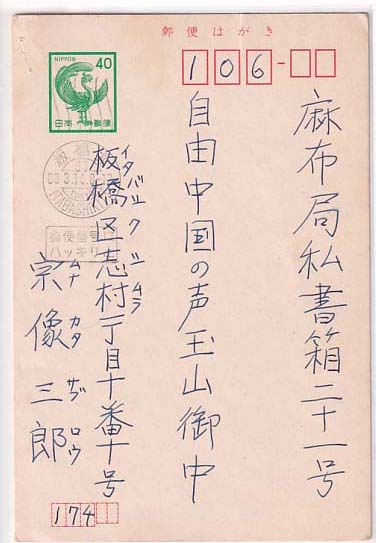 郵便はがき
NIPPON
40
日本郵便
106
麻布局私書箱二十一号
自由中国の声玉山御中
板橋区志村一丁目十番十号
イタバシク シムラ
宗像三郎
ムナカタ サブロウ
174
板橋
ITABASHI
郵便番号は
ハッキリ